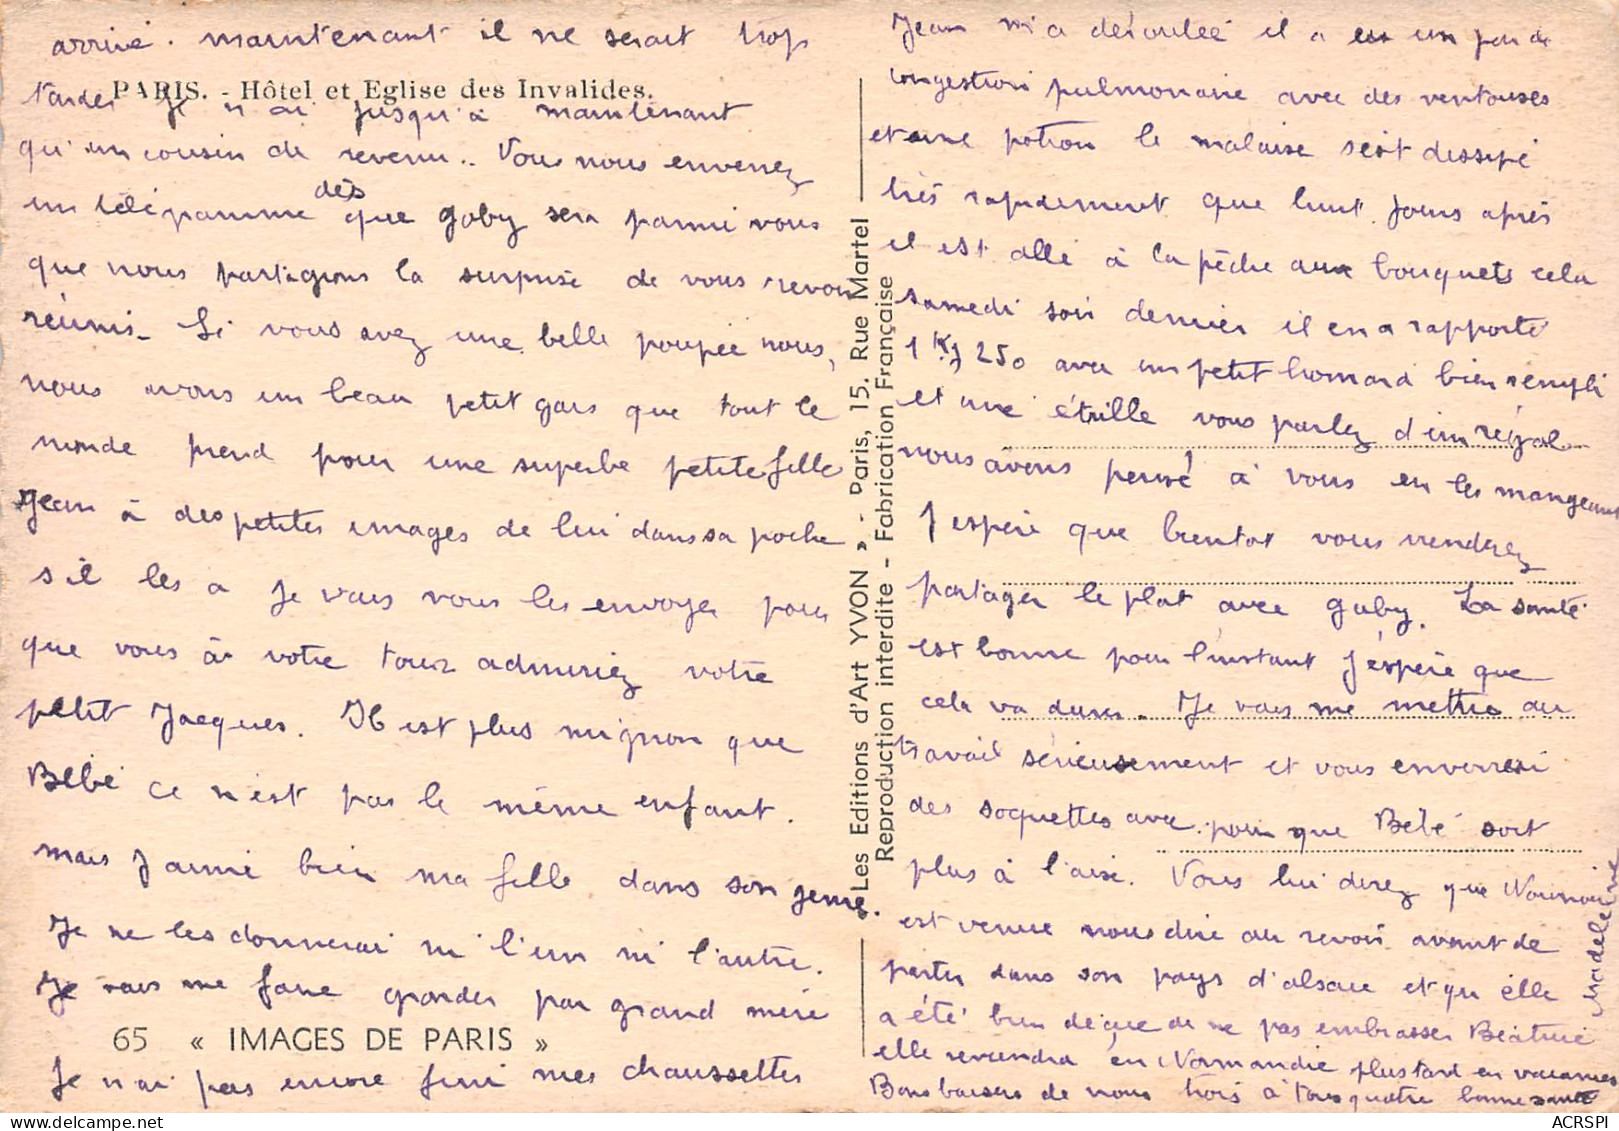 arrivé. maintenant il ne serait trop
PARIS. - Hôtel et Eglise des Invalides.
tarder Je n ai jusqu'à maintenant
qu'un cousin de revenu.. Vous nous enverrez
un télépamme dès que gaby sera parmi vous
que nous partagions la surprise de vous revoir
réunis. Si vous avez une belle poupée nous,
nous avons un beau petit gars que tout le
monde prend pour une superbe petite fille
Jean à des petites images de lui dans sa poche
s il les a je vais vous les envoyer pour
que vous à votre tour admiriez votre
petit Jacques. Il est plus mignon que
Bébé ce n'est pas le même enfant.
mais j'aime bien ma fille dans son genre.
Je ne les donnerai ni l'un ni l'autre.
Je vais me faire gronder par grand mère
65 « IMAGES DE PARIS »
Je n'ai pas encore fini mes chaussettes
Les Editions d'Art YVON » - Paris, 15, Rue Martel
Reproduction interdite - Fabrication Française
Jean m'a il a eu un peu de
congestion pulmonaire avec des ventouses
et une potion le malaise s'est dissipé
très rapidement que huit jours après
il est allé à la pêche aux bouquets cela
samedi soir dernier il en a rapporté
1 Kg 250 avec un petit homard bien rempli
et une étrille vous parlez d'un régal
nous avons pensé à vous en les mangeant
J espère que bientot vous viendrez
partager le plat avec gaby. La santé
est bonne pour l'instant j'espère que
cela va durer. Je vais me mettre au
travail sérieusement et vous enverrai
des soquettes avec pour que Bébé soit
plus à l'aise. Vous lui direz que Nounou
est venue nous dire au revoir avant de
partir dans son pays d'alsace et qu'elle
a été bien déçue de ne pas embrasser Béatrice
elle reviendra en Normandie plus tard en vacances
Bons baisers de nous trois à tous quatre bonne santé
Madeleine
ACRSPI